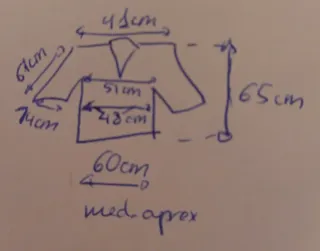 41cm
61cm
51cm
65cm
14cm
48cm
60cm
med aprox